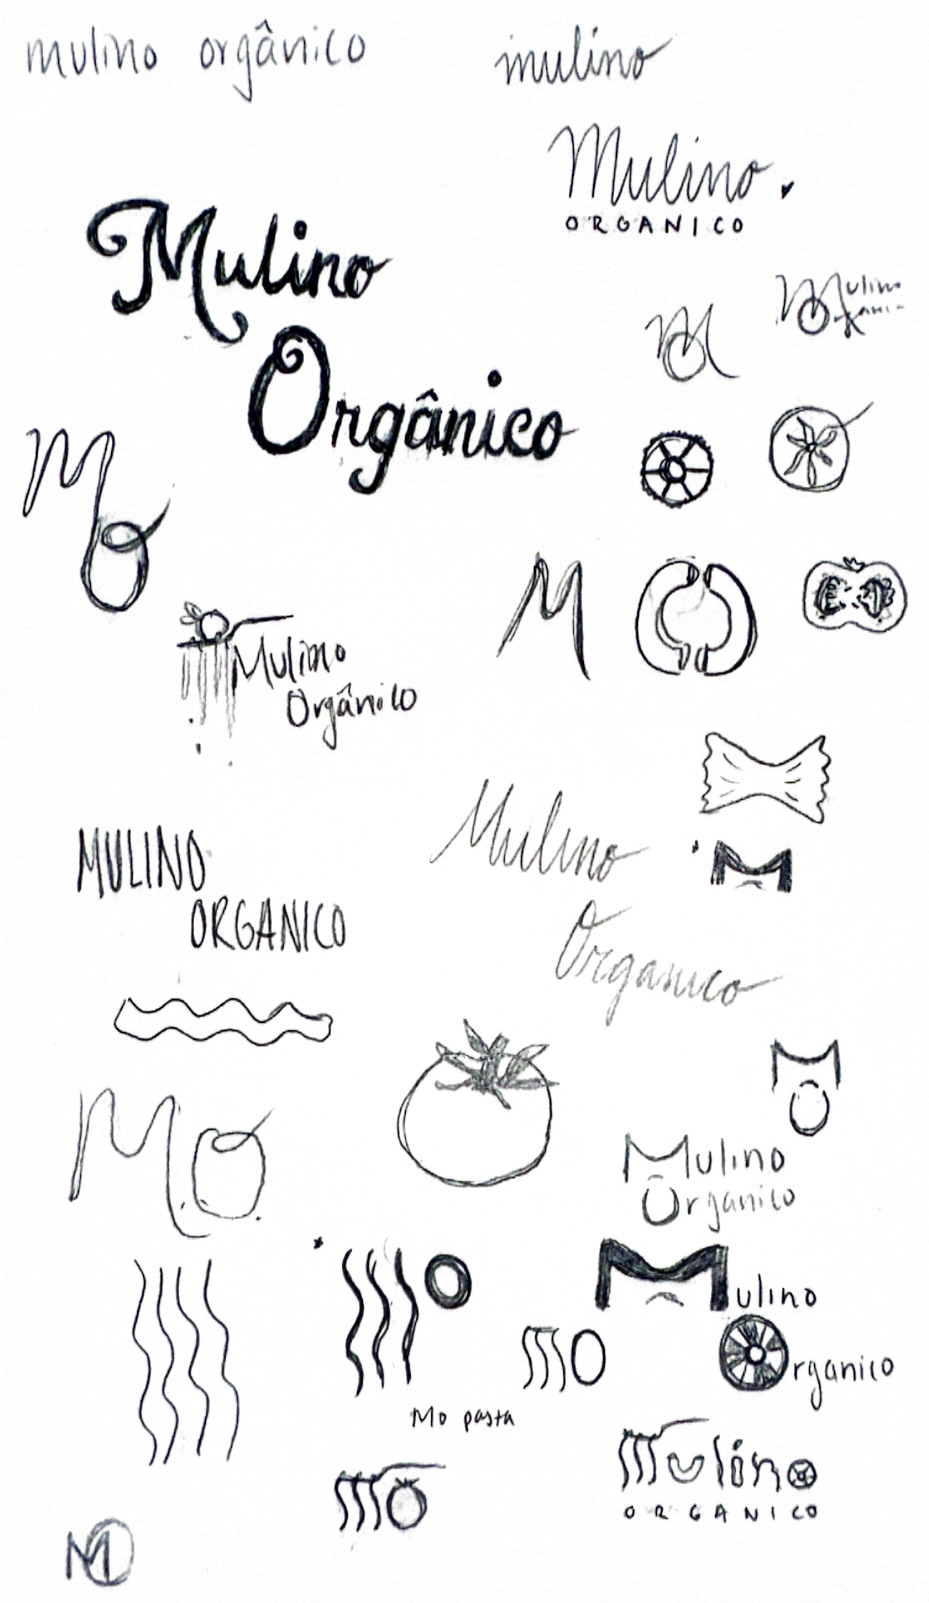 mulino orgânico
mulino
Mulino
ORGANICO
Mulino
Orgânico
M
Mulino
Mo
Mulino
Orgânico
M
MULINO
ORGANICO
Mulino
Organico
M
Mo
Mulino
Organico
mo
Mulino
Organico
mo
Mo pasta
mo
mulino
ORGANICO
MO